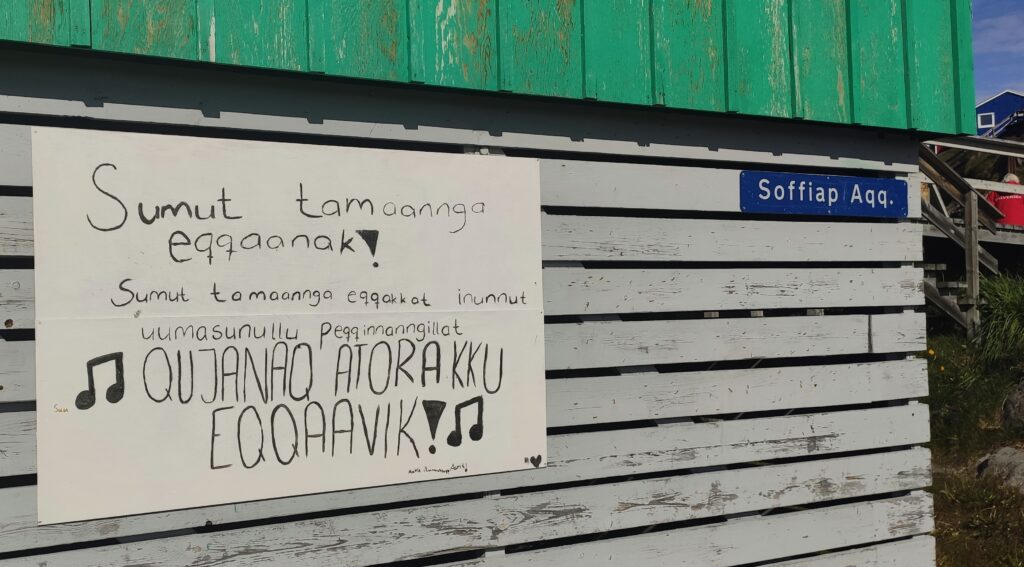 Sumut tamaannga
eqqaanak!
Sumut tamaannga eqqakkat inunnut
uumasunullu peqqinanngillat
QUJANAQ ATORAKKU
EQQAAVIK!
Soffiap Aqq.